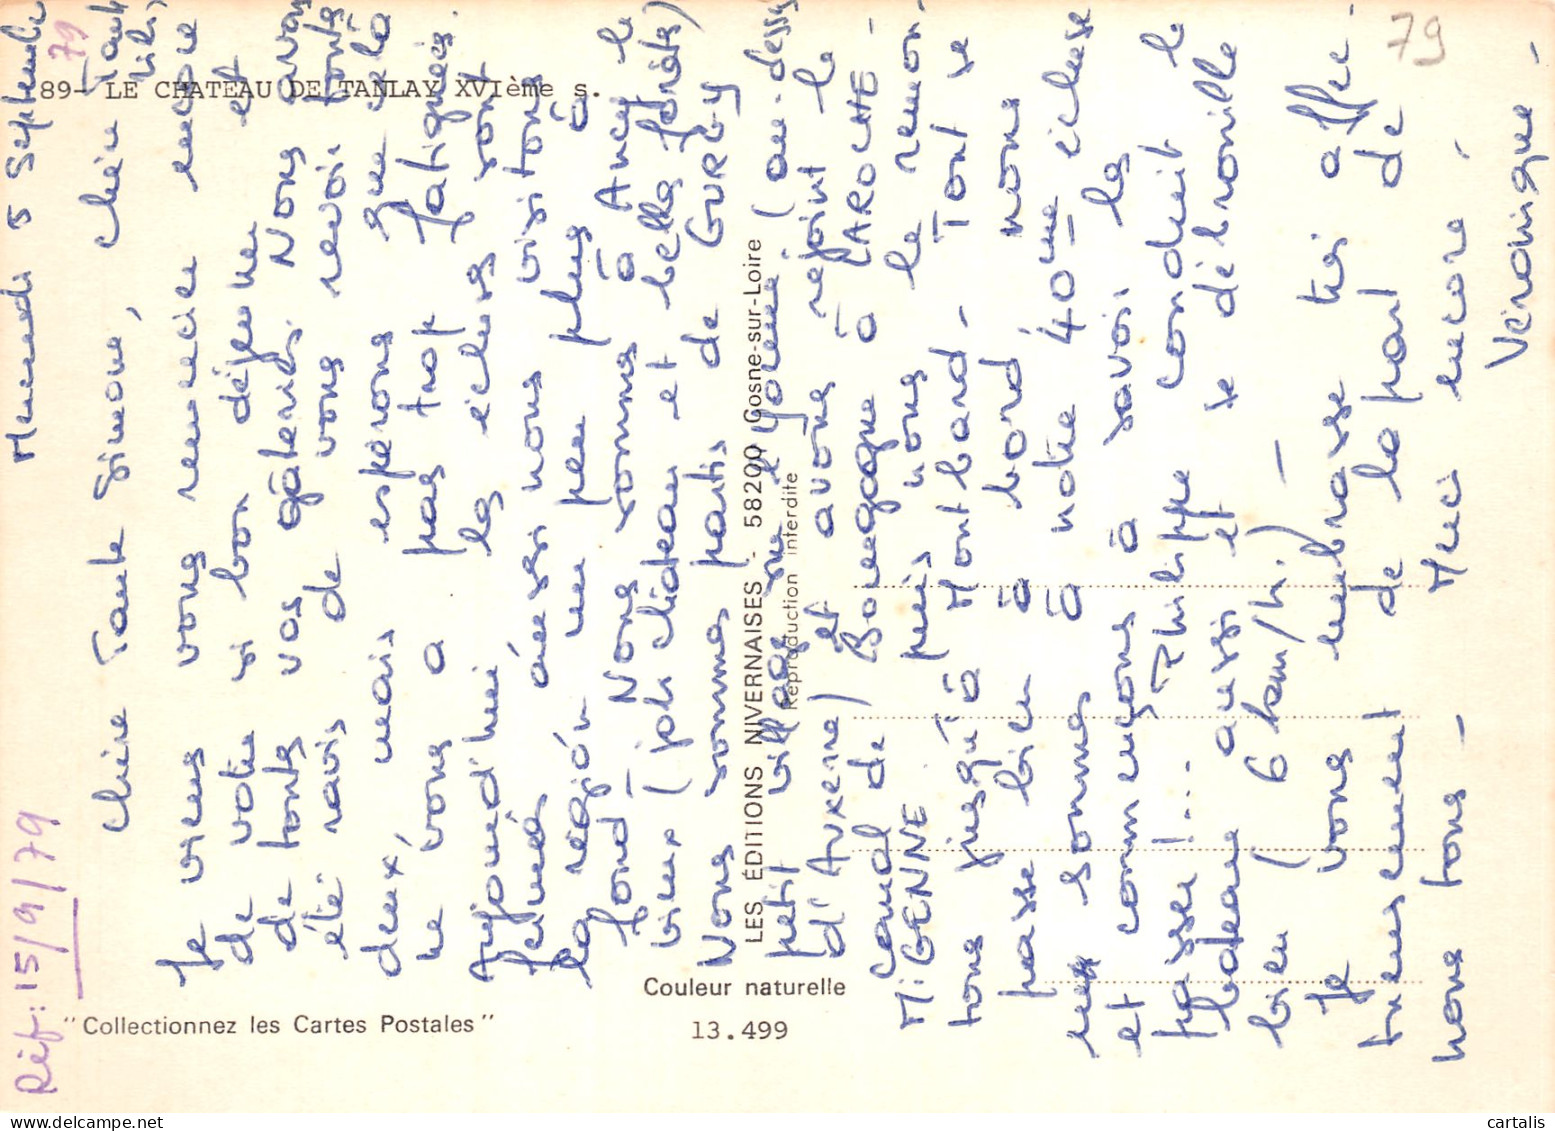 89- LE CHATEAU DE TANLAY XVIème s.
79
79
Réf: 15/9/79
Mercredi 5 Septembre
Chère Tante Simone, chère Tante
Lili,
Je viens vous remercier encore
de votre si bon déjeuner et
de toutes vos gâteries. Nous avons
été ravis de vous revoir toutes
deux, mais espérons que cela
ne vous a pas trop fatiguées.
Aujourd'hui les écluses sont
fermées aussi nous visitons
la région un peu plus à
fond. Nous sommes à Ancy le
vieux (joli château et belles forêts)
Nous sommes partis de GURGY
petit village sur l'Yonne (au-dessus
d'Auxerre) et avons rejoint le
Canal de Bourgogne à LAROCHE -
MIGENNE puis nous le remon-
tons jusqu'à Montbard. Tout se
passe bien à bord nous
en sommes à notre 40ème écluse
et commençons à savoir les
passer !... Philippe conduit le
bateau aussi et se débrouille
bien (6 km/h.) -
Je vous embrasse très affec-
tueusement de la part de
nous tous - Merci encore,
Véronique -
LES ÉDITIONS NIVERNAISES - 58200 Cosne-sur-Loire
Reproduction interdite
Couleur naturelle
"Collectionnez les Cartes Postales"
13.499
cartalis